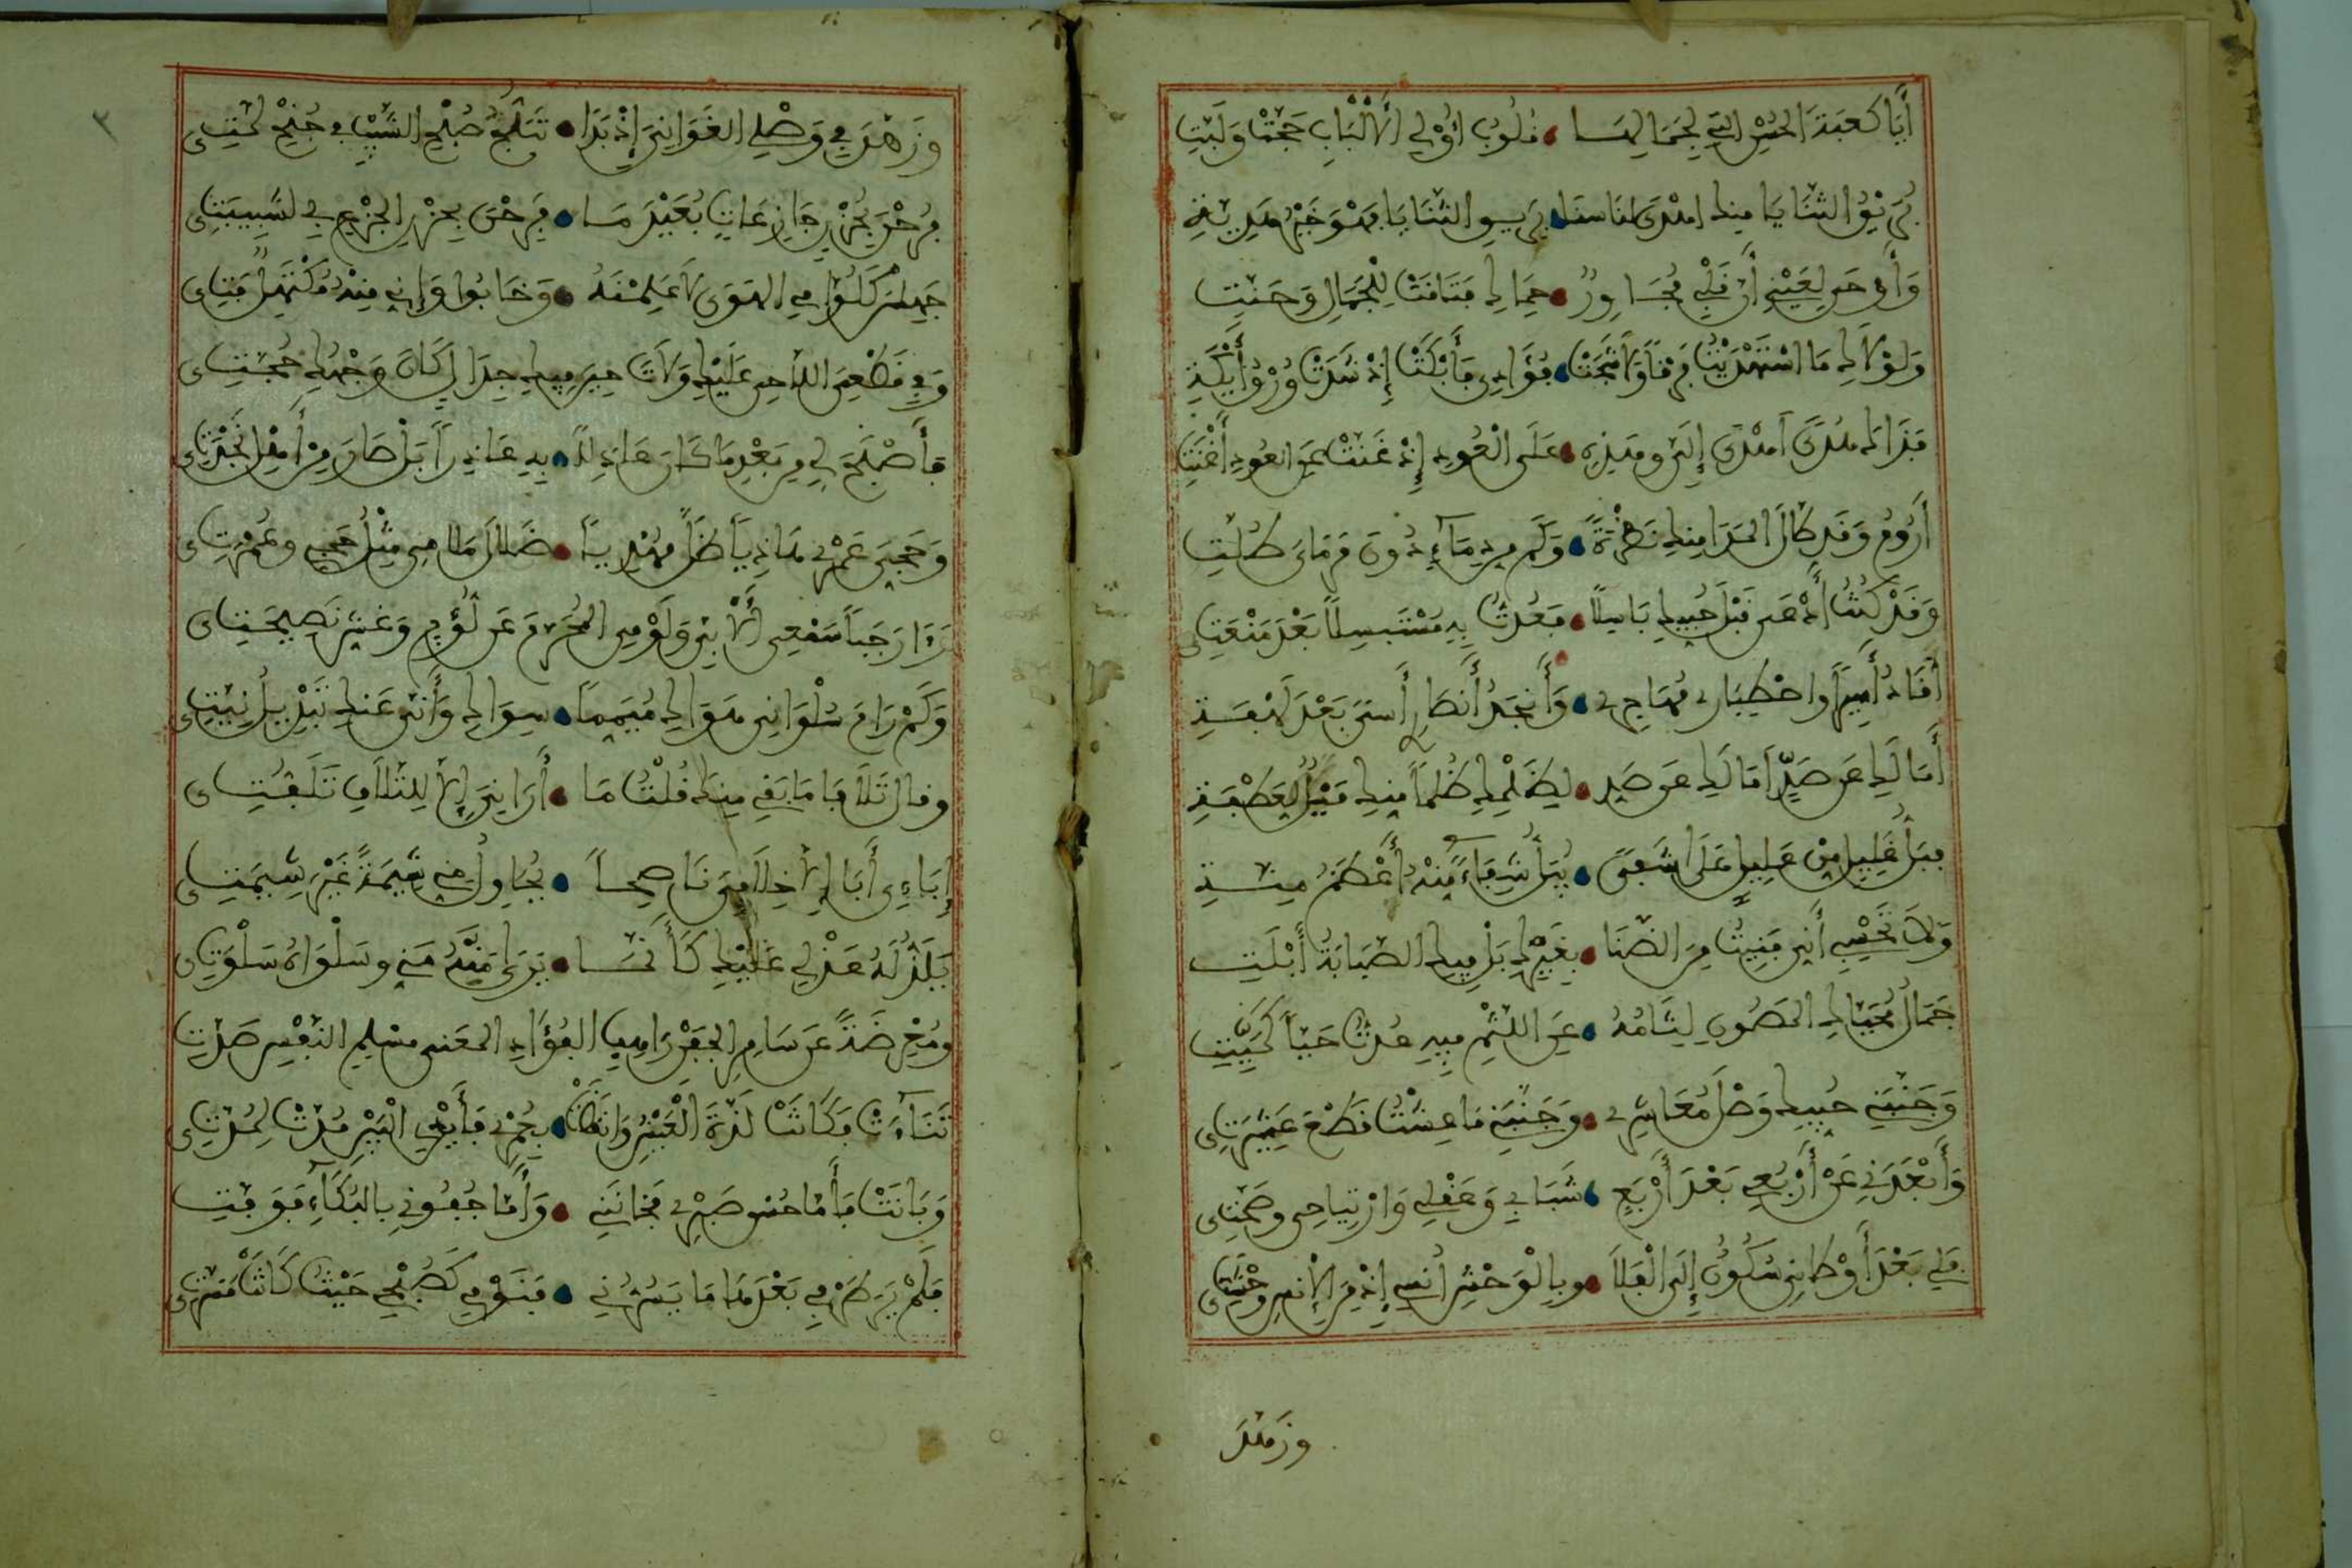 أَيَا كَعْبَةَ الحُسْنِ التِي لِجَمَالِهَا قُلُوبُ أُوْلِي الأَلْبَابِ حَجَّتْ وَلَبَّتِ
بَرِيقُ الثَّنَايَا مِنكِ أَهْدَى لَنَا سَنَا بُرَيقِ الثَّنَايَا فَهْوَ خَيْرُ هَدِيَّةِ
وَأَوْحَى لِعَيْنِي أَنَّ قَلْبِي مُجَاوِرٌ حِمَاكِ فَتَاقَتْ لِلْجَمَالِ وَحَنَّتِ
وَلَوْلَاكِ مَا اسْتَهْدَيْتُ بَرْقاً وَلَا شَجَتْ فُؤَادِي فَأَبْكَتْ إِذْ شَدَتْ وُرْقُ أَيْكَةِ
فَذَاكَ هُدًى أَهْدَى إِلَيَّ وَهَذِهِ عَلَى الْعُودِ إِذْ غَنَّتْ عَنِ العُودِ أَغْنَتِ
أَرُومُ وَقَدْ طَالَ المَدَا مِنكِ نَظْرَةً وَكَم مِن دِمَاءٍ دُونَ مَرْمَايَ طُلَّتِ
وَقَدْ كُنْتُ أُدْعَى قَبْلَ حُبِّيكِ بَاسِلًا فَعُدْتُ بِهِ مُسْتَبْسِلًا بَعْدَ مَنْعَتِي
أُقَادُ أَسِيرًا وَاصْطِبَارِي مُهَاجِرِي وَأَنجَدُ أَنصَارِي أَسًى بَعْدَ لَهْفَةِ
أَمَا لَكِ عَن صَدٍّ أَمَالَكِ عَن صَدٍ لِظَلْمِكِ ظُلْماً مِنكِ مَيْلٌ لِعَطْفَةِ
فَبَلُّ غَلِيلٍ مِنْ عَلِيلٍ عَلَى شَفًى يُبِلُّ شِفَاءً مِنْهُ أَعْظَمُ مِنَّةِ
وَلَا تَحْسِبِي أَنِّي فَنِيتُ مِنَ الضَّنَا بِغَيْرِكِ بَلْ فِيكِ الصَّبَابَةُ أَبْلَتِ
جَمَالُ مُحَيَّاكِ المَصُونِ لِثَامُهُ عَنِ اللَّثْمِ فِيهِ عُدْتُ حَيّاً كَمَيِّتِ
وَجَنَّبَنِي حُبِّيكِ وَصْلَ مُعَاشِرِي وَحَبَّبَنِي مَا عِشْتُ قَطْعَ عَشِيرَتِي
وَأَبْعَدَنِي عَنْ أَرْبُعِي بُعْدَ أَرْبَعٍ شَبَابِي وَعَقْلِي وَارْتِيَاحِي وَصِحَّتِي
فَلِي بَعْدَ أَوْطَانِي سُكُونٌ إِلَى الْفَلَا وَبِالْوَحْشِ أُنسِي إِذْ مِنَ الإِنسِ وَحْشَتِي
وَزَهَّدَ
وَزَهَّدَ فِي وَصْلِي الغَوَانِيَ إِذْ بَدَا تَبَلُّجُ صُبْحِ الشَّيْبِ فِي جُنْحِ لِمَّتِي
فَرُحْنَ بِحُزْنٍ جَازِعَاتٍ بُعَيْدَ مَا فَرِحْنَ بِحَزْنِ الجَزْعِ بِي لِشَبِيبَتِي
جَهِلْنَ كَلُوَّامِي الهَوَى لَا عَلِمْنَهُ وَخَابُوا وَإِنِّي مِنْهُ مُكْتَهِلٌ فَتِي
وَفِي قَطْعِيَ اللَّاحِي عَلَيْكِ وَلَاتَ حِينَ فِيكِ جِدَالٍ كَانَ وَجْهُكِ حُجَّتِي
فَأَصْبَحَ لِي مِن بَعْدِ مَا كَانَ عَاذِلًا بِهِ عَاذِرًا بَلْ صَارَ مِنْ أَهْلِ نَجْدَتِي
وَحَجِّيَ عَمْرِي هَادِياً ظَلَّ مُهْدِياً ضَلَالَ مَلَامِي مِثْلُ حَجِّي وَعُمْرَتِي
رَءَا رَجَباً سَمْعِي الأَبِيَّ وَلَوْمِيَ المُحَرَّمَ عَن لُؤْمٍ وَغِشِّ نَصِيحَتِي
وَكَمْ رَامَ سُلْوَانِي هَوَاكِ مُيَمِّماً سِوَاكِ وَأَنَّى عَنكِ تَبْدِيلُ نِيَّتِي
وَقَالَ تَلَافَ مَا بَقِي مِنكَ قُلْتُ مَا أُرَانِيَ إِلَّا لِلتَّلَافِ تَلَفُّتِي
إِبَاءِي أَبَا إِلَّا خِلَافِيَ نَاصِحاً يُحَاوِلُ مِنِّي شِيمَةً غَيْرَ شِيمَتِي
يَلَذُّ لَهُ عَذْلِي عَلَيْكِ كَأَنَّمَا يَرَى مَنَّهُ مَنِّي وَسَلْوَاهُ سَلْوَتِي
وَمُعْرِضَةً عَن سَامِرِ الجَفْنِ رَاهِبِ الفُؤَادِ المُعَنَّى مُسْلِمِ النَّفْسِ صَدَّتِ
تَنَاءَتْ فَكَانَتْ لَذَّةَ الْعَيْشِ وَانقَضَتْ بِعُمْرِي فَأَيْدِي الْبَيْنِ مُدَّتْ لِمُدَّتِي
وَبَانَتْ فَأَمَّا حُسْنُ صَبْرِي فَخَانَنِي وَأَمَّا جُفُونِي بِالبُكَاءِ فَوَفَّتِ
فَلَمْ يَرَ طَرْفِي بَعْدَهَا مَا يَسُرُّنِي فَنَوْمِي كَصُبْحِي حَيْثُ كَانَتْ مَسَرَّتِي
٢